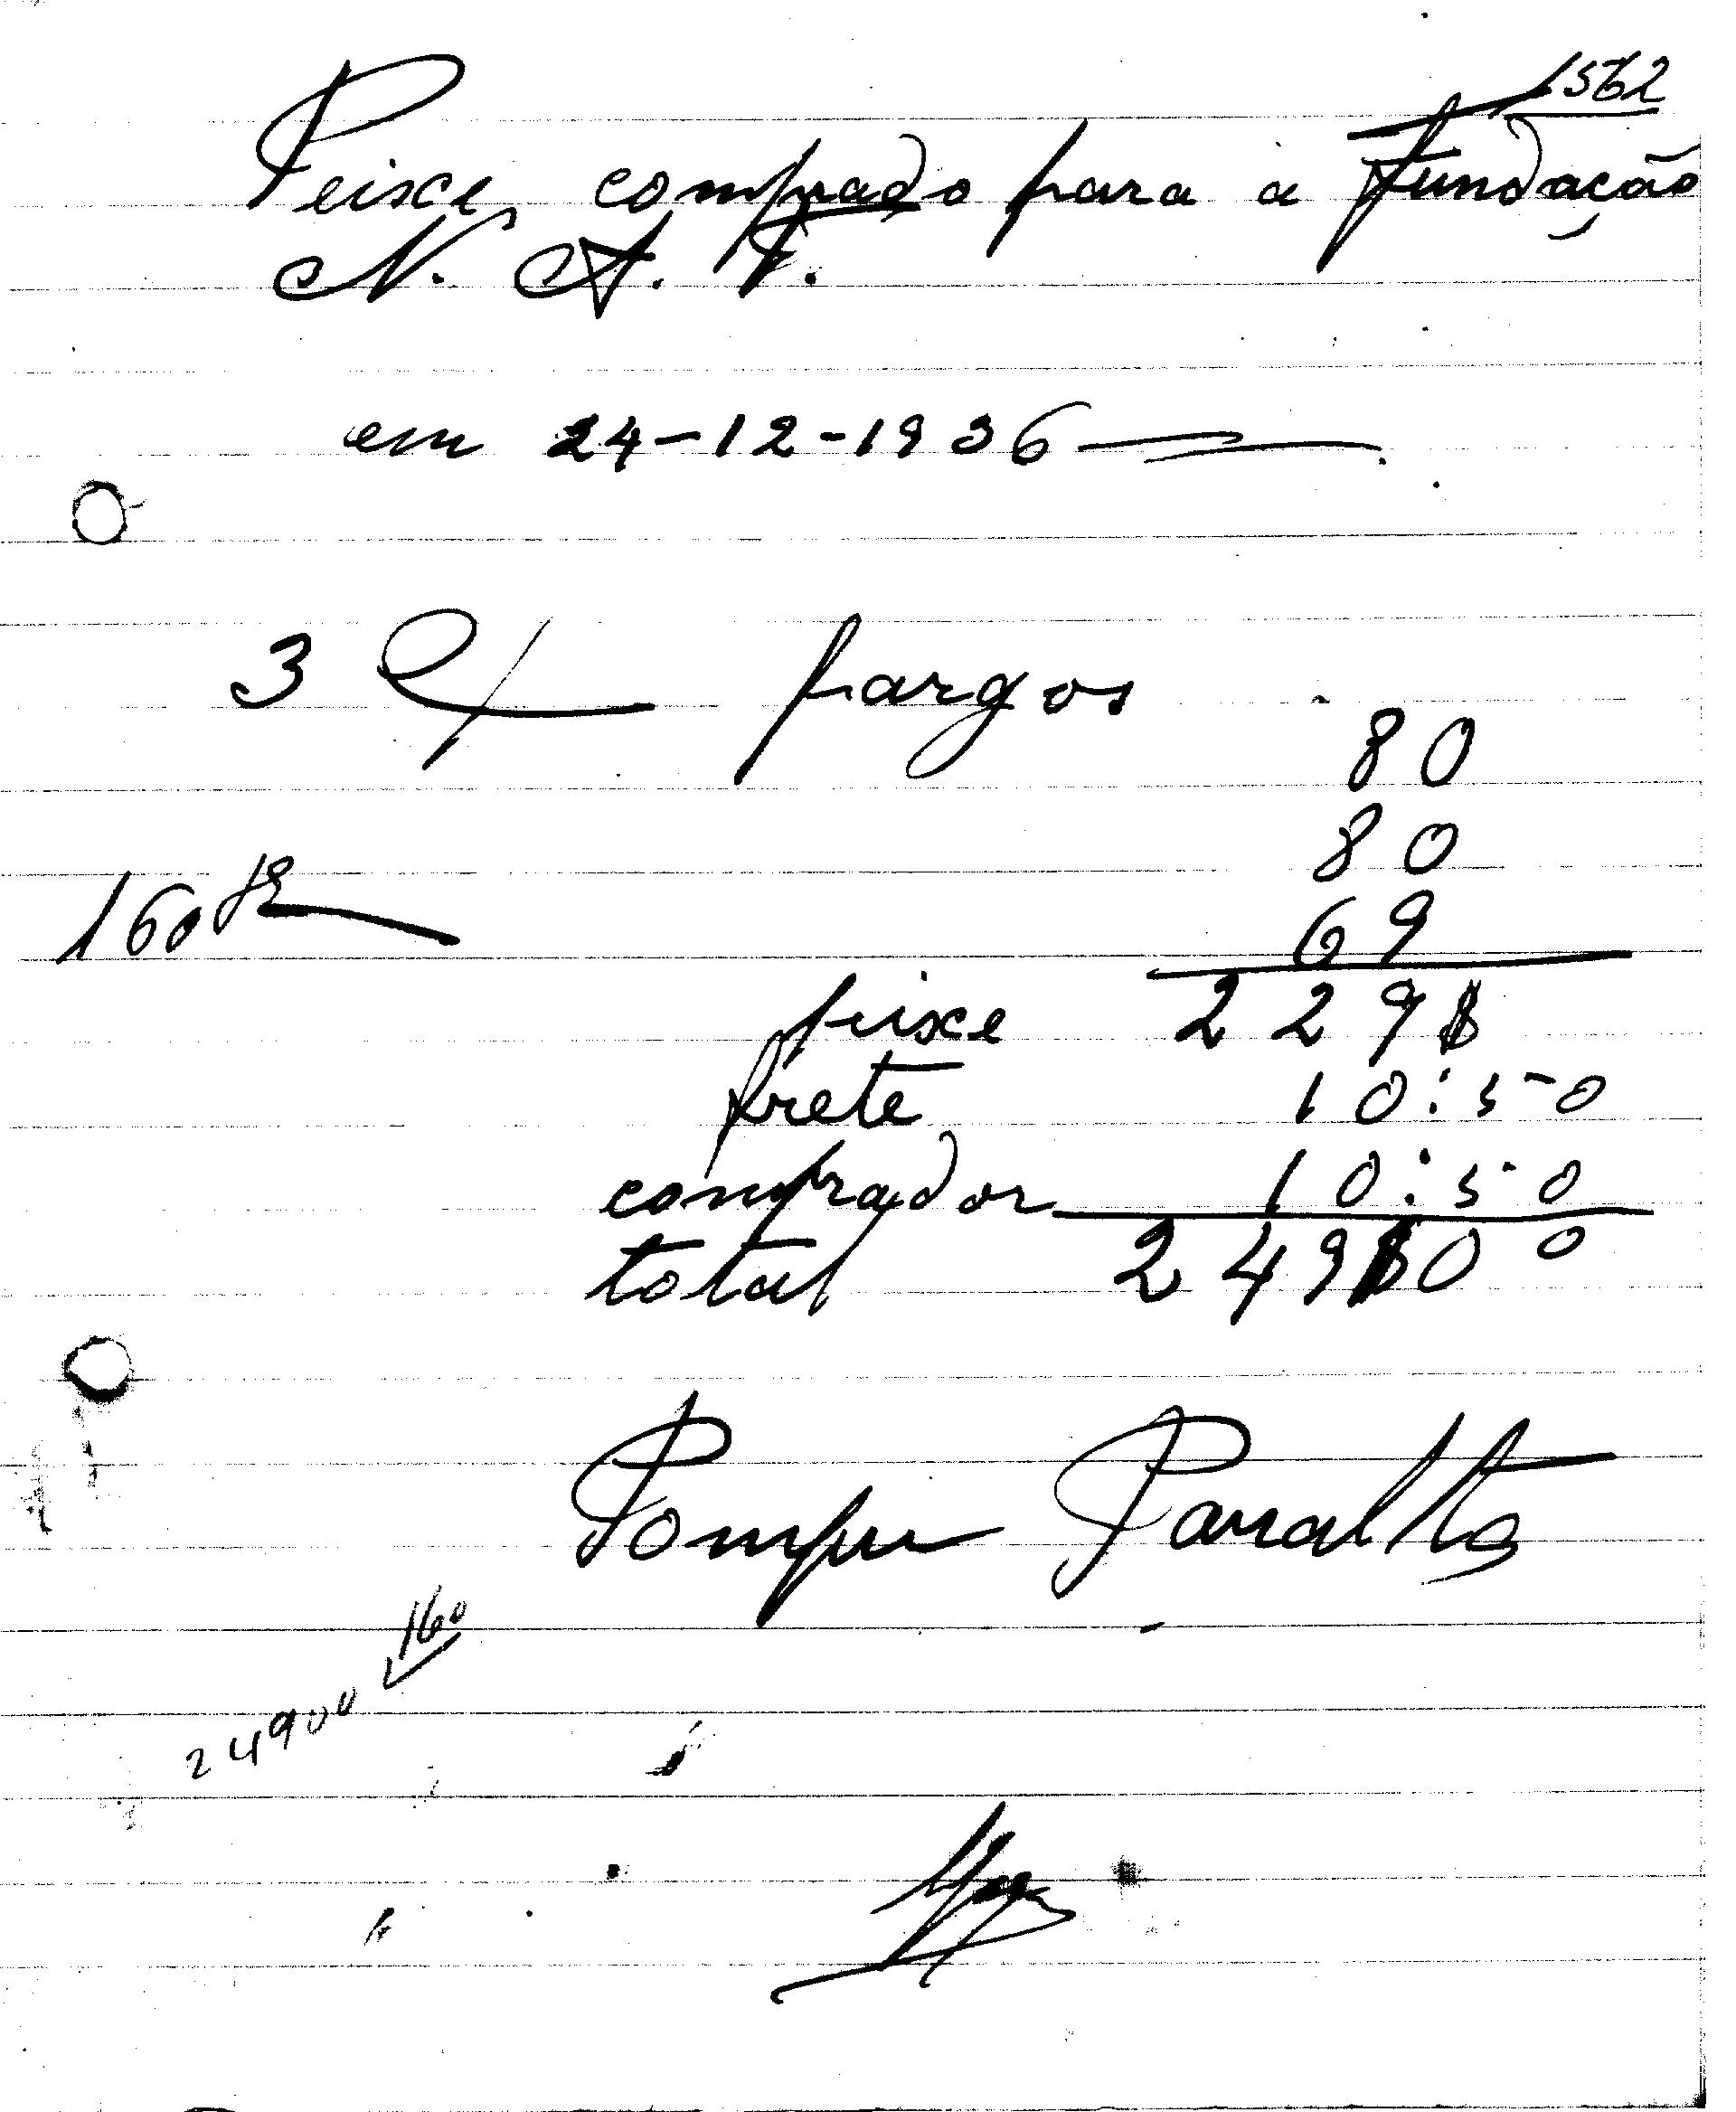 1562
Peixe comprado para a Fundação
N. A. T.
em 24-12-1936
3 C/ pargos
80
80
160 69
peixe 229$
frete 10:50
comprador 10:50
total 249$00
160
24900